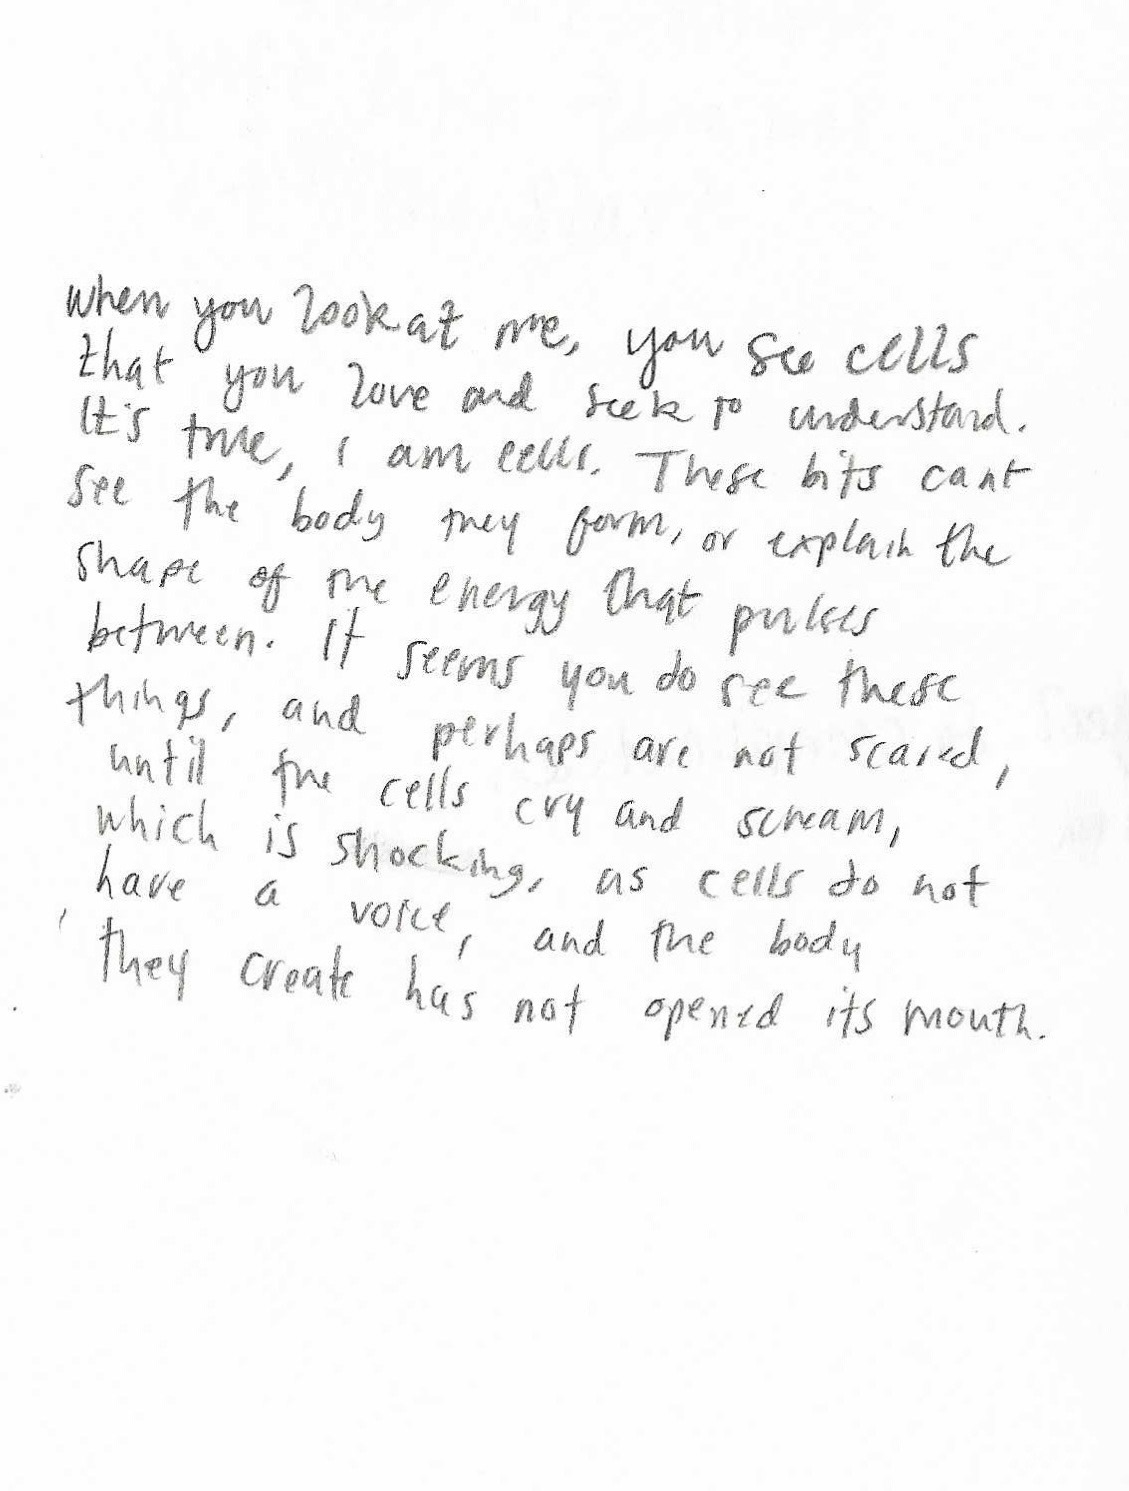 when you look at me, you see cells
that you love and seek to understand.
It's true, i am cells. These bits cant
see the body they form, or explain the
shape of the energy that pulses
between. It seems you do see these
things, and perhaps are not scared,
until the cells cry and scream,
which is shocking, as cells do not
have a voice, and the body
they create has not opened its mouth.